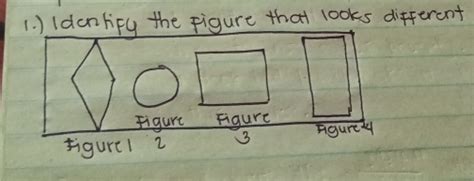 1.) Identify the figure that looks different
Figure 1
Figure 2
Figure 3
Figure 4